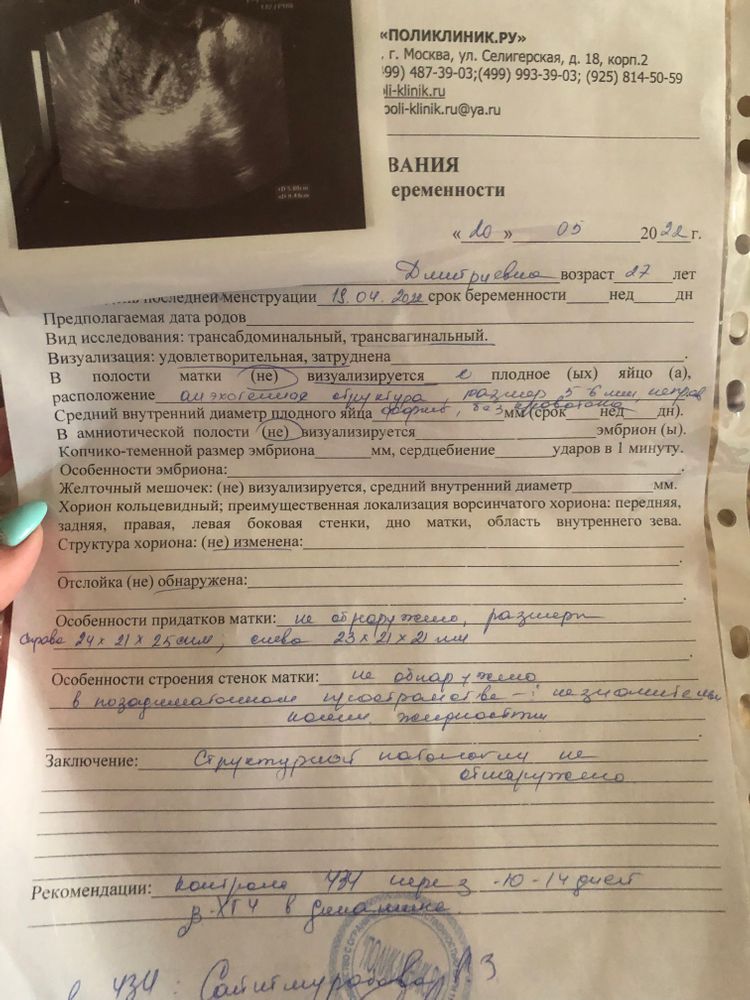 «ПОЛИКЛИНИК.РУ»
, г. Москва, ул. Селигерская, д. 18, корп.2
99) 487-39-03;(499) 993-39-03; (925) 814-50-59
li-klinik.ru
poli-klinik.ru@ya.ru
ВАНИЯ
еременности
« 20 » 05 2022 г.
Дмитриевна возраст 27 лет
последней менструации 19.04.2022 срок беременности нед дн
Предполагаемая дата родов
Вид исследования: трансабдоминальный, трансвагинальный.
Визуализация: удовлетворительная, затруднена
В полости матки (не) визуализируется плодное (ых) яйцо (а),
расположение анэхогенное структура, размер 5-6 мм, неправ
Средний внутренний диаметр плодного яйца формы, без кровотока мм (срок нед дн).
В амниотической полости (не) визуализируется эмбрион (ы).
Копчико-теменной размер эмбриона мм, сердцебиение ударов в 1 минуту.
Особенности эмбриона:
Желточный мешочек: (не) визуализируется, средний внутренний диаметр мм.
Хорион кольцевидный; преимущественная локализация ворсинчатого хориона: передняя,
задняя, правая, левая боковая стенки, дно матки, область внутреннего зева.
Структура хориона: (не) изменена:
Отслойка (не) обнаружена:
Особенности придатков матки: не обнаружено, размеры
справа 24 х 21 х 25 мм, слева 23 х 21 х 21 мм
Особенности строения стенок матки: не обнаружено
в позадиматочном пространстве - незначительн
колич. жидкости
Заключение: Структурной патологии не
обнаружено
Рекомендации: контроль УЗИ через -10-14 дней
β-ХГЧ в динамике.
УЗИ: